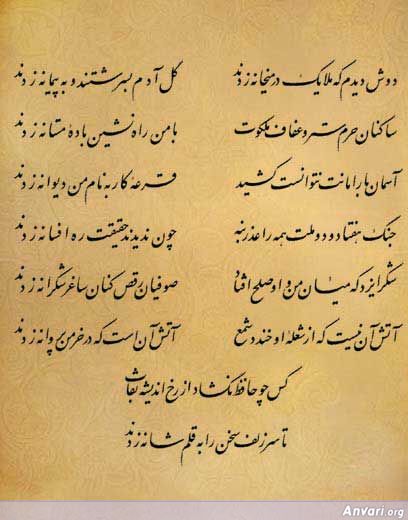 دوش دیدم که ملایک در میخانه زدند گل آدم بسرشتند و به پیمانه زدند
ساکنان حرم ستر و عفاف ملکوت با من راه نشین باده مستانه زدند
آسمان بار امانت نتوانست کشید قرعه کار به نام من دیوانه زدند
جنگ هفتاد و دو ملت همه را عذر بنه چون ندیدند حقیقت ره افسانه زدند
شکر ایزد که میان من و او صلح افتاد صوفیان رقص کنان ساغر شکرانه زدند
آتش آن نیست که از شعله او خندد شمع آتش آن است که در خرمن پروانه زدند
کس چو حافظ نگشاد از رخ اندیشه نقاب
تا سر زلف سخن را به قلم شانه زدند
Anvari.org